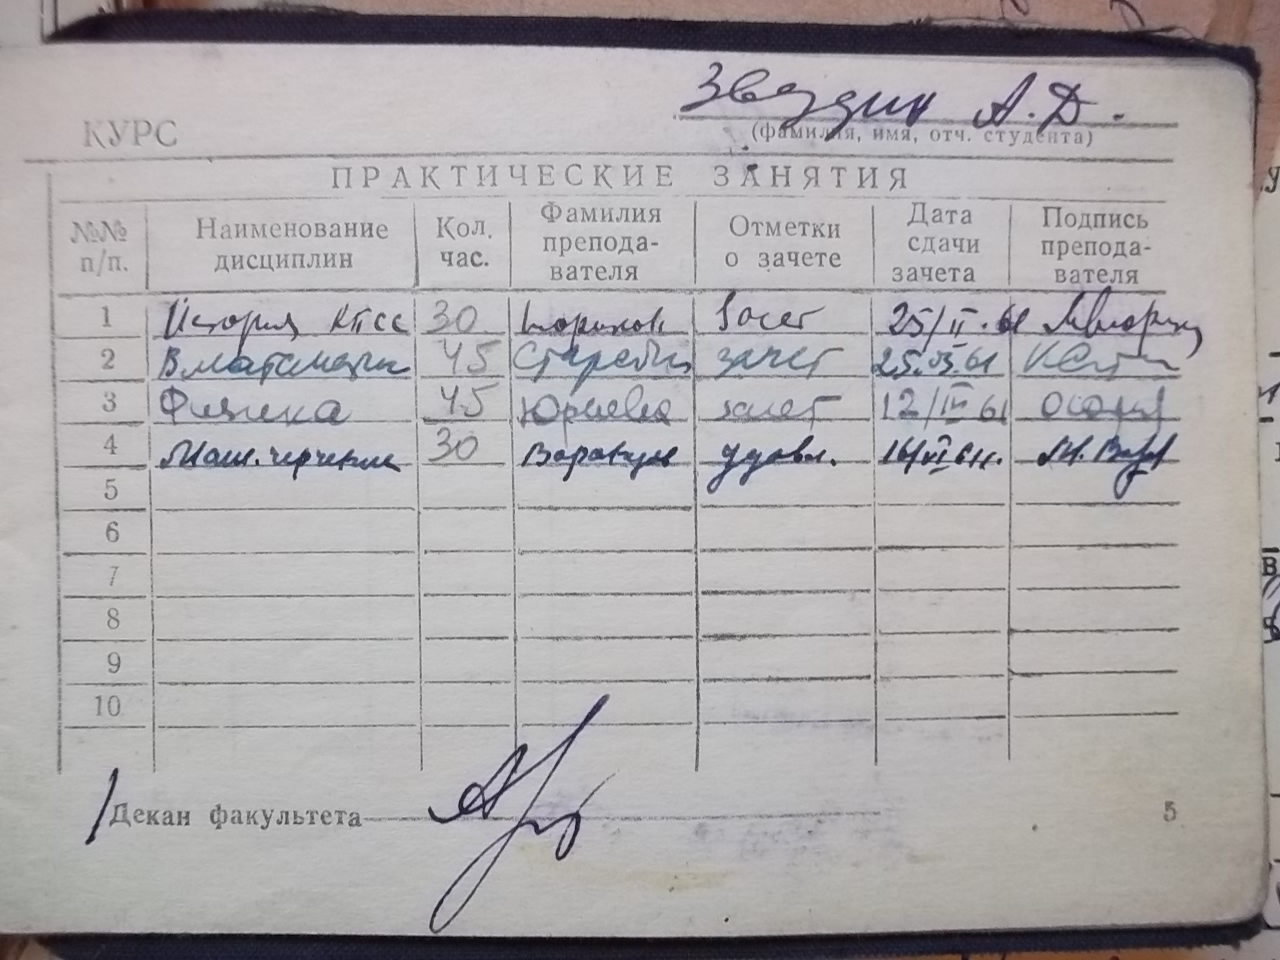 Звездин А.Д.
КУРС
(фамилия, имя, отч. студента)
ПРАКТИЧЕСКИЕ ЗАНЯТИЯ
№№ п/п. Наименование дисциплин Кол. час. Фамилия преподавателя Отметки о зачете Дата сдачи зачета Подпись преподавателя
1 История КПСС 30 зачет
2 В.математика 45 зачет 25.05.61
3 Физика 45 Юрьева зачет 12/
4 Маш.черчение 30 удовл.
5
6
7
8
9
10
Декан факультета
5